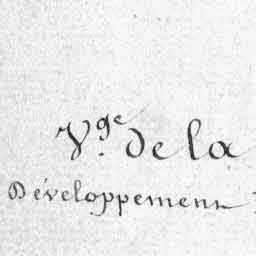 V.ge de la
Développement